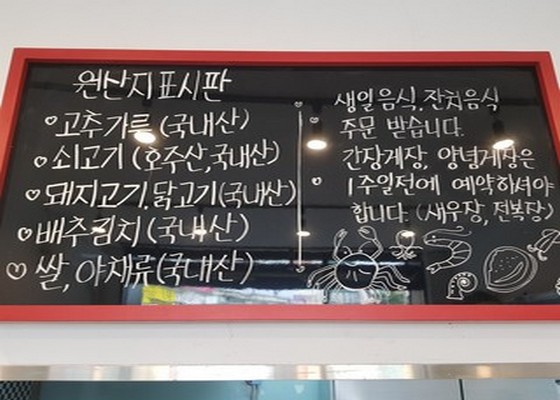 원산지표시판
고추가루 (국내산)
쇠고기 (호주산,국내산)
돼지고기.닭고기(국내산)
배추김치(국내산)
쌀, 야채류(국내산)
생일음식,잔치음식
주문 받습니다.
간장게장, 양념게장은
1주일전에 예약하셔야
합니다. (새우장, 전복장)